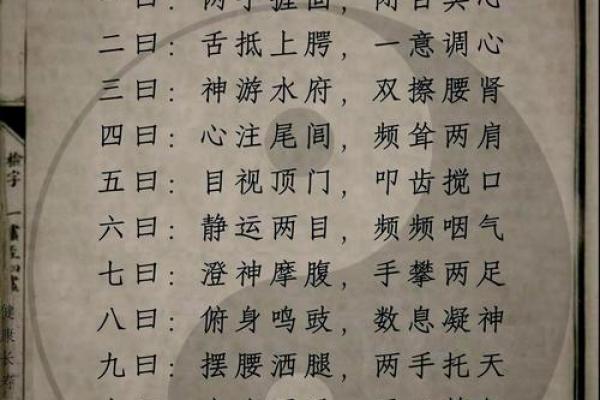 二曰：舌抵上腭，一意调心
三曰：神游水府，双擦腰肾
四曰：心注尾闾，频耸两肩
五曰：目视顶门，叩齿搅口
六曰：静运两目，频频咽气
七曰：澄神摩腹，手攀两足
八曰：俯身鸣鼓，数息凝神
九曰：摆腰洒腿，两手托天
健康长寿